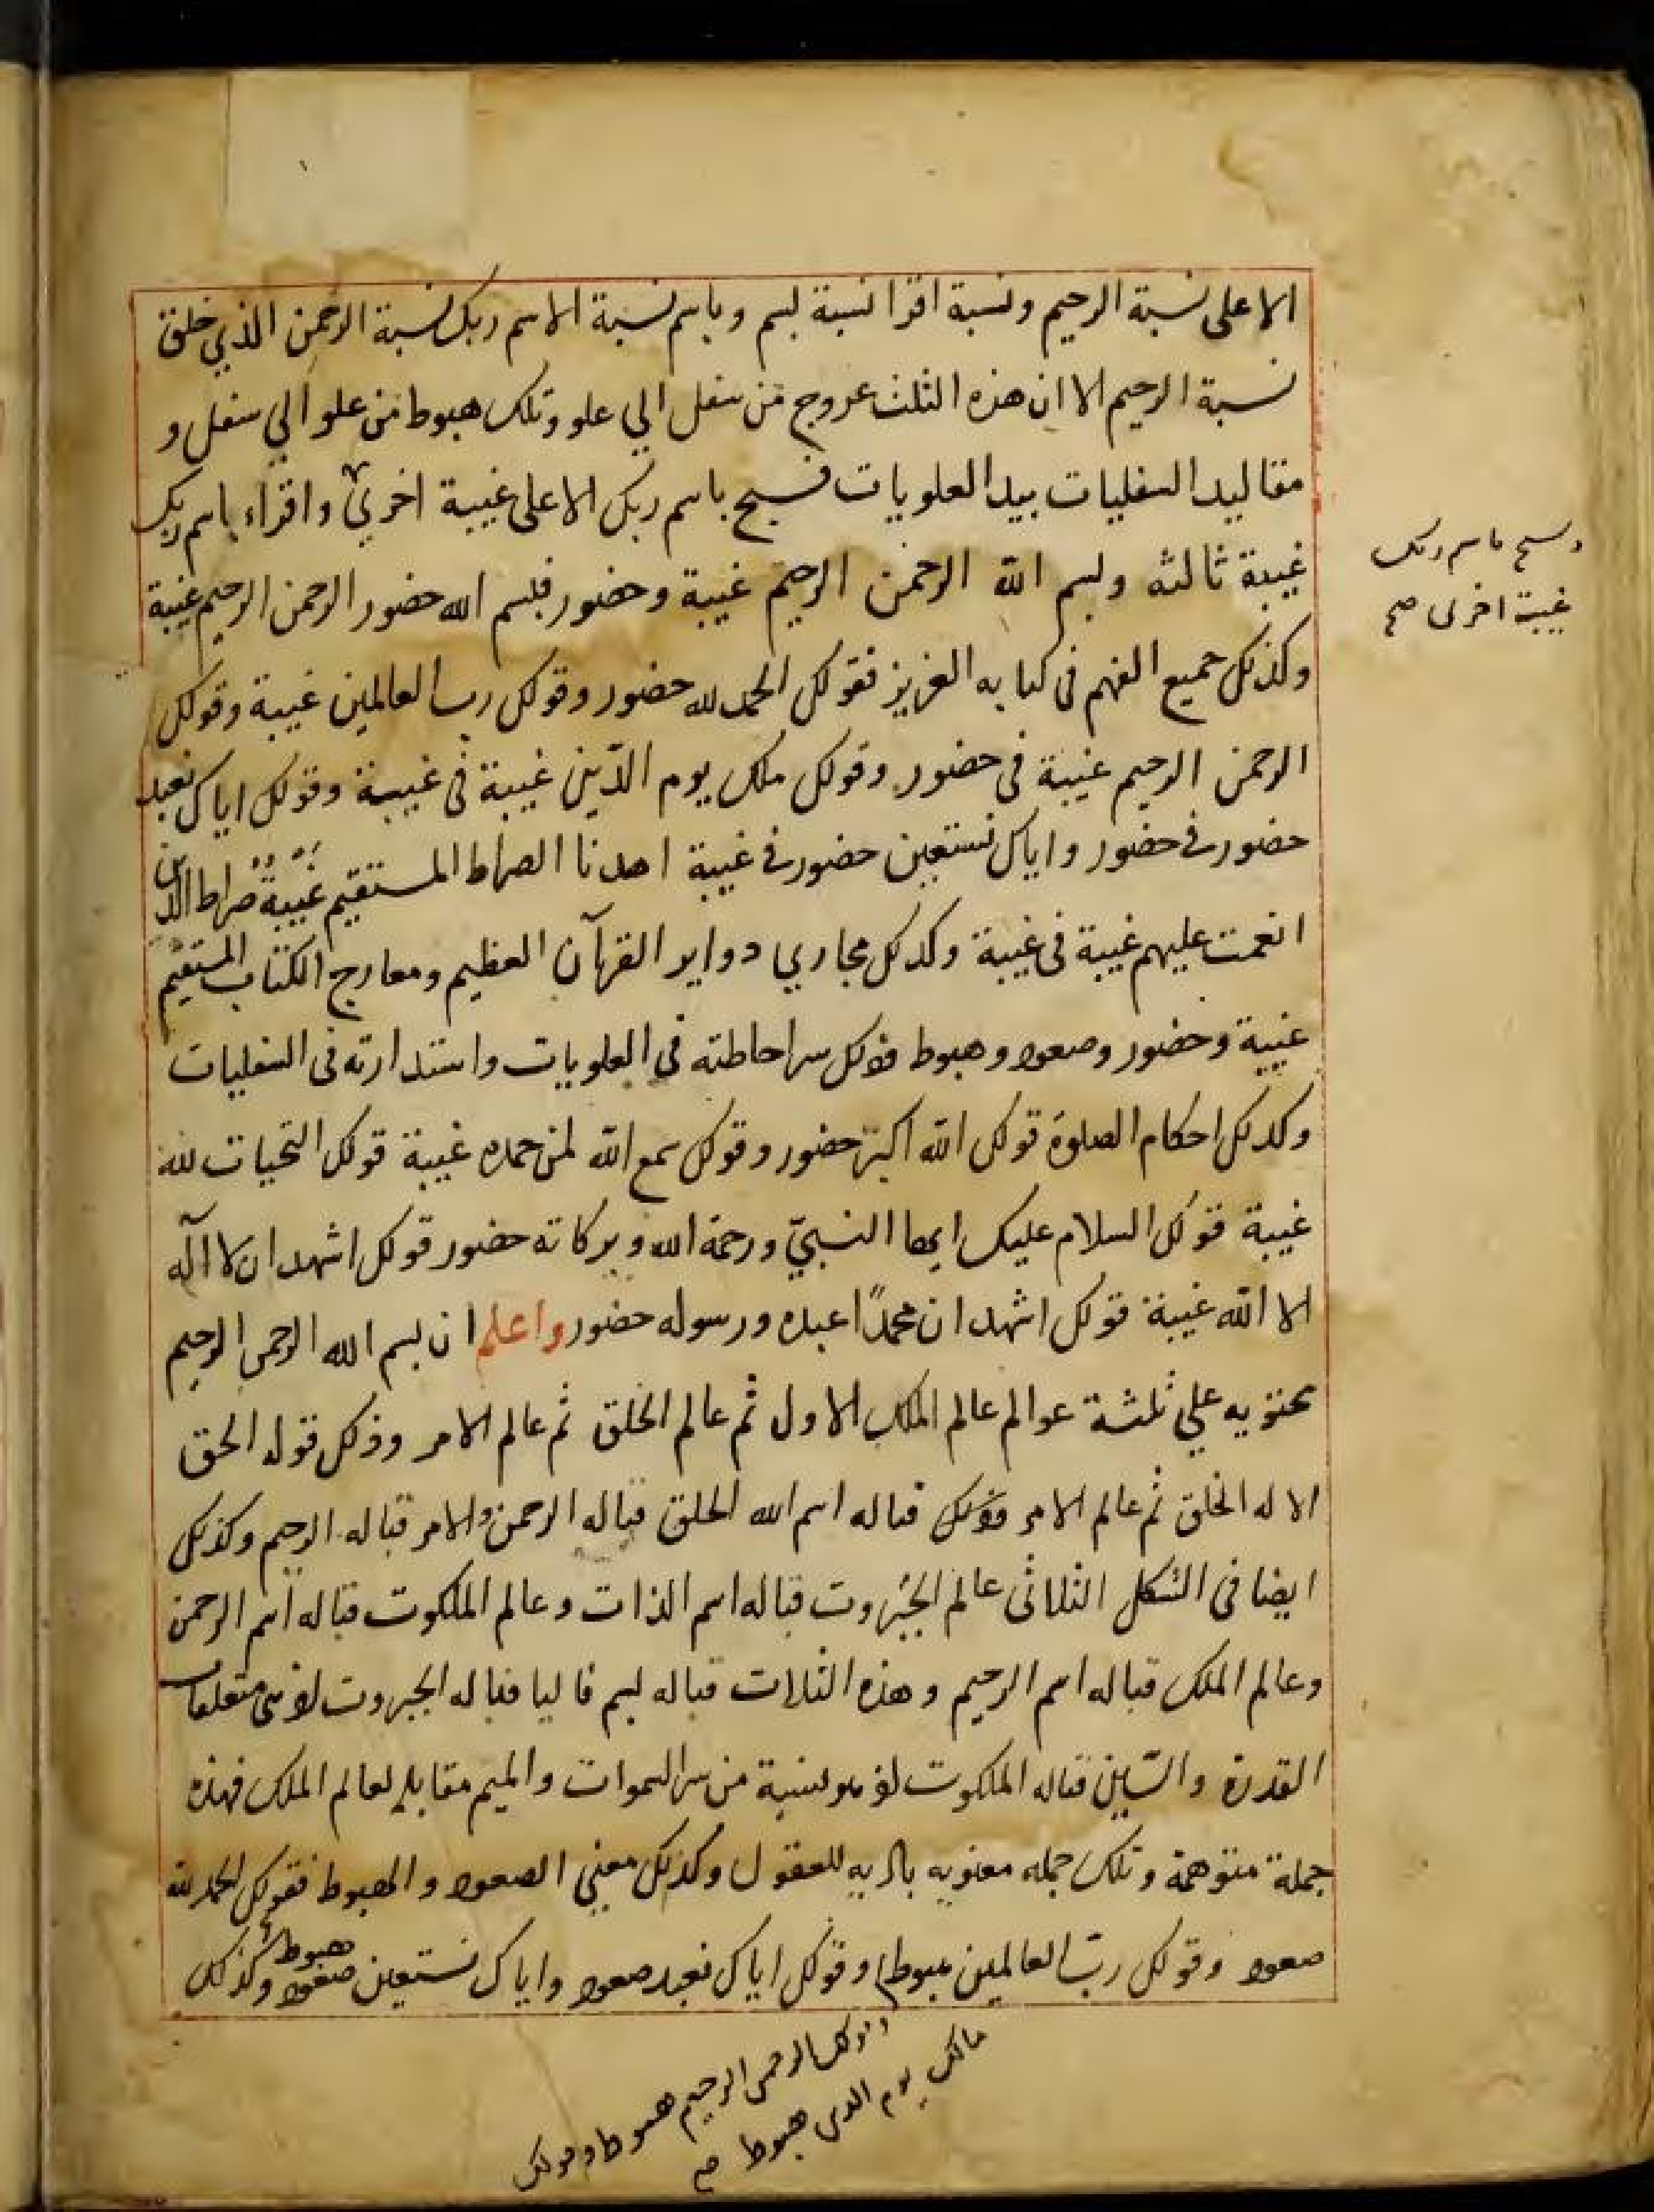 الاعلى نسبة الرحيم ونسبة اقرا نسبة بسم وباسم نسبة الاسم ربك نسبة الرحمن الذي خلق
نسبة الرحيم الا ان هذه الثلث عروج من سفل الي علو وتلك هبوط من علو الي سفل و
مقاليد السفليات بيد العلويات فسبح باسم ربك الاعلى غيبة اخرى واقراء باسم ربك
غيبة ثالثه وبسم الله الرحمن الرحيم غيبة وحضور فبسم الله حضور الرحمن الرحيم غيبة
وكذلك جميع الفهم فى كتابه العزيز فقولك الحمد لله حضور وقولك رب العالمين غيبة وقولك
الرحمن الرحيم غيبة فى حضور وقولك ملك يوم الدّين غيبة فى غيبة وقولك اياك نعبد
حضور فى حضور واياك نستعين حضور فى غيبة اهدنا الصراط المستقيم غيبة صراط الذين
انعمت عليهم غيبة فى غيبة وكذلك مجاري دواير القرآن العظيم ومعارج الكتاب المستقيم
غيبة وحضور وصعود وهبوط فذلك سر احاطته فى العلويات واستدارته فى السفليات
وكذلك احكام الصلوة قولك الله اكبر حضور وقولك سمع الله لمن حمده غيبة قولك التحيات لله
غيبة قولك السلام عليك ايها النبيّ ورحمة الله وبركاته حضور قولك اشهد ان لا اله
الا الله غيبة قولك اشهد ان محمدًا عبده ورسوله حضور واعلم ان بسم الله الرحمن الرحيم
محتويه علي ثلثة عوالم عالم الملك الاول ثم عالم الخلق ثم عالم الامر وذلك قوله الحق
الا له الخلق ثم عالم الامر فذلك قباله اسم الله الخلق قباله الرحمن والامر قباله الرحيم وكذلك
ايضا فى الشكل الثلاثى عالم الجبروت قباله اسم الذات وعالم الملكوت قباله اسم الرحمن
وعالم الملك قباله اسم الرحيم وهذه الثلاث قباله بسم فالبا قباله الجبروت متعلقات
القدرة والسّين قباله الملكوت نسبة من سر السموات والميم مقابله لعالم الملك فهذه
جملة متوهمة وتلك جمله معنويه باديه للعقول وكذلك معني الصعود والهبوط فقولك الحمد لله
صعود وقولك ربّ العالمين هبوط وقولك اياك نعبد صعود واياك نستعين صعود هبوط وكذلك
وسبح باسم ربك
غيبة اخرى صح
وقولك الرحمن الرحيم هبوط وقولك
مالك يوم الدين هبوط صح